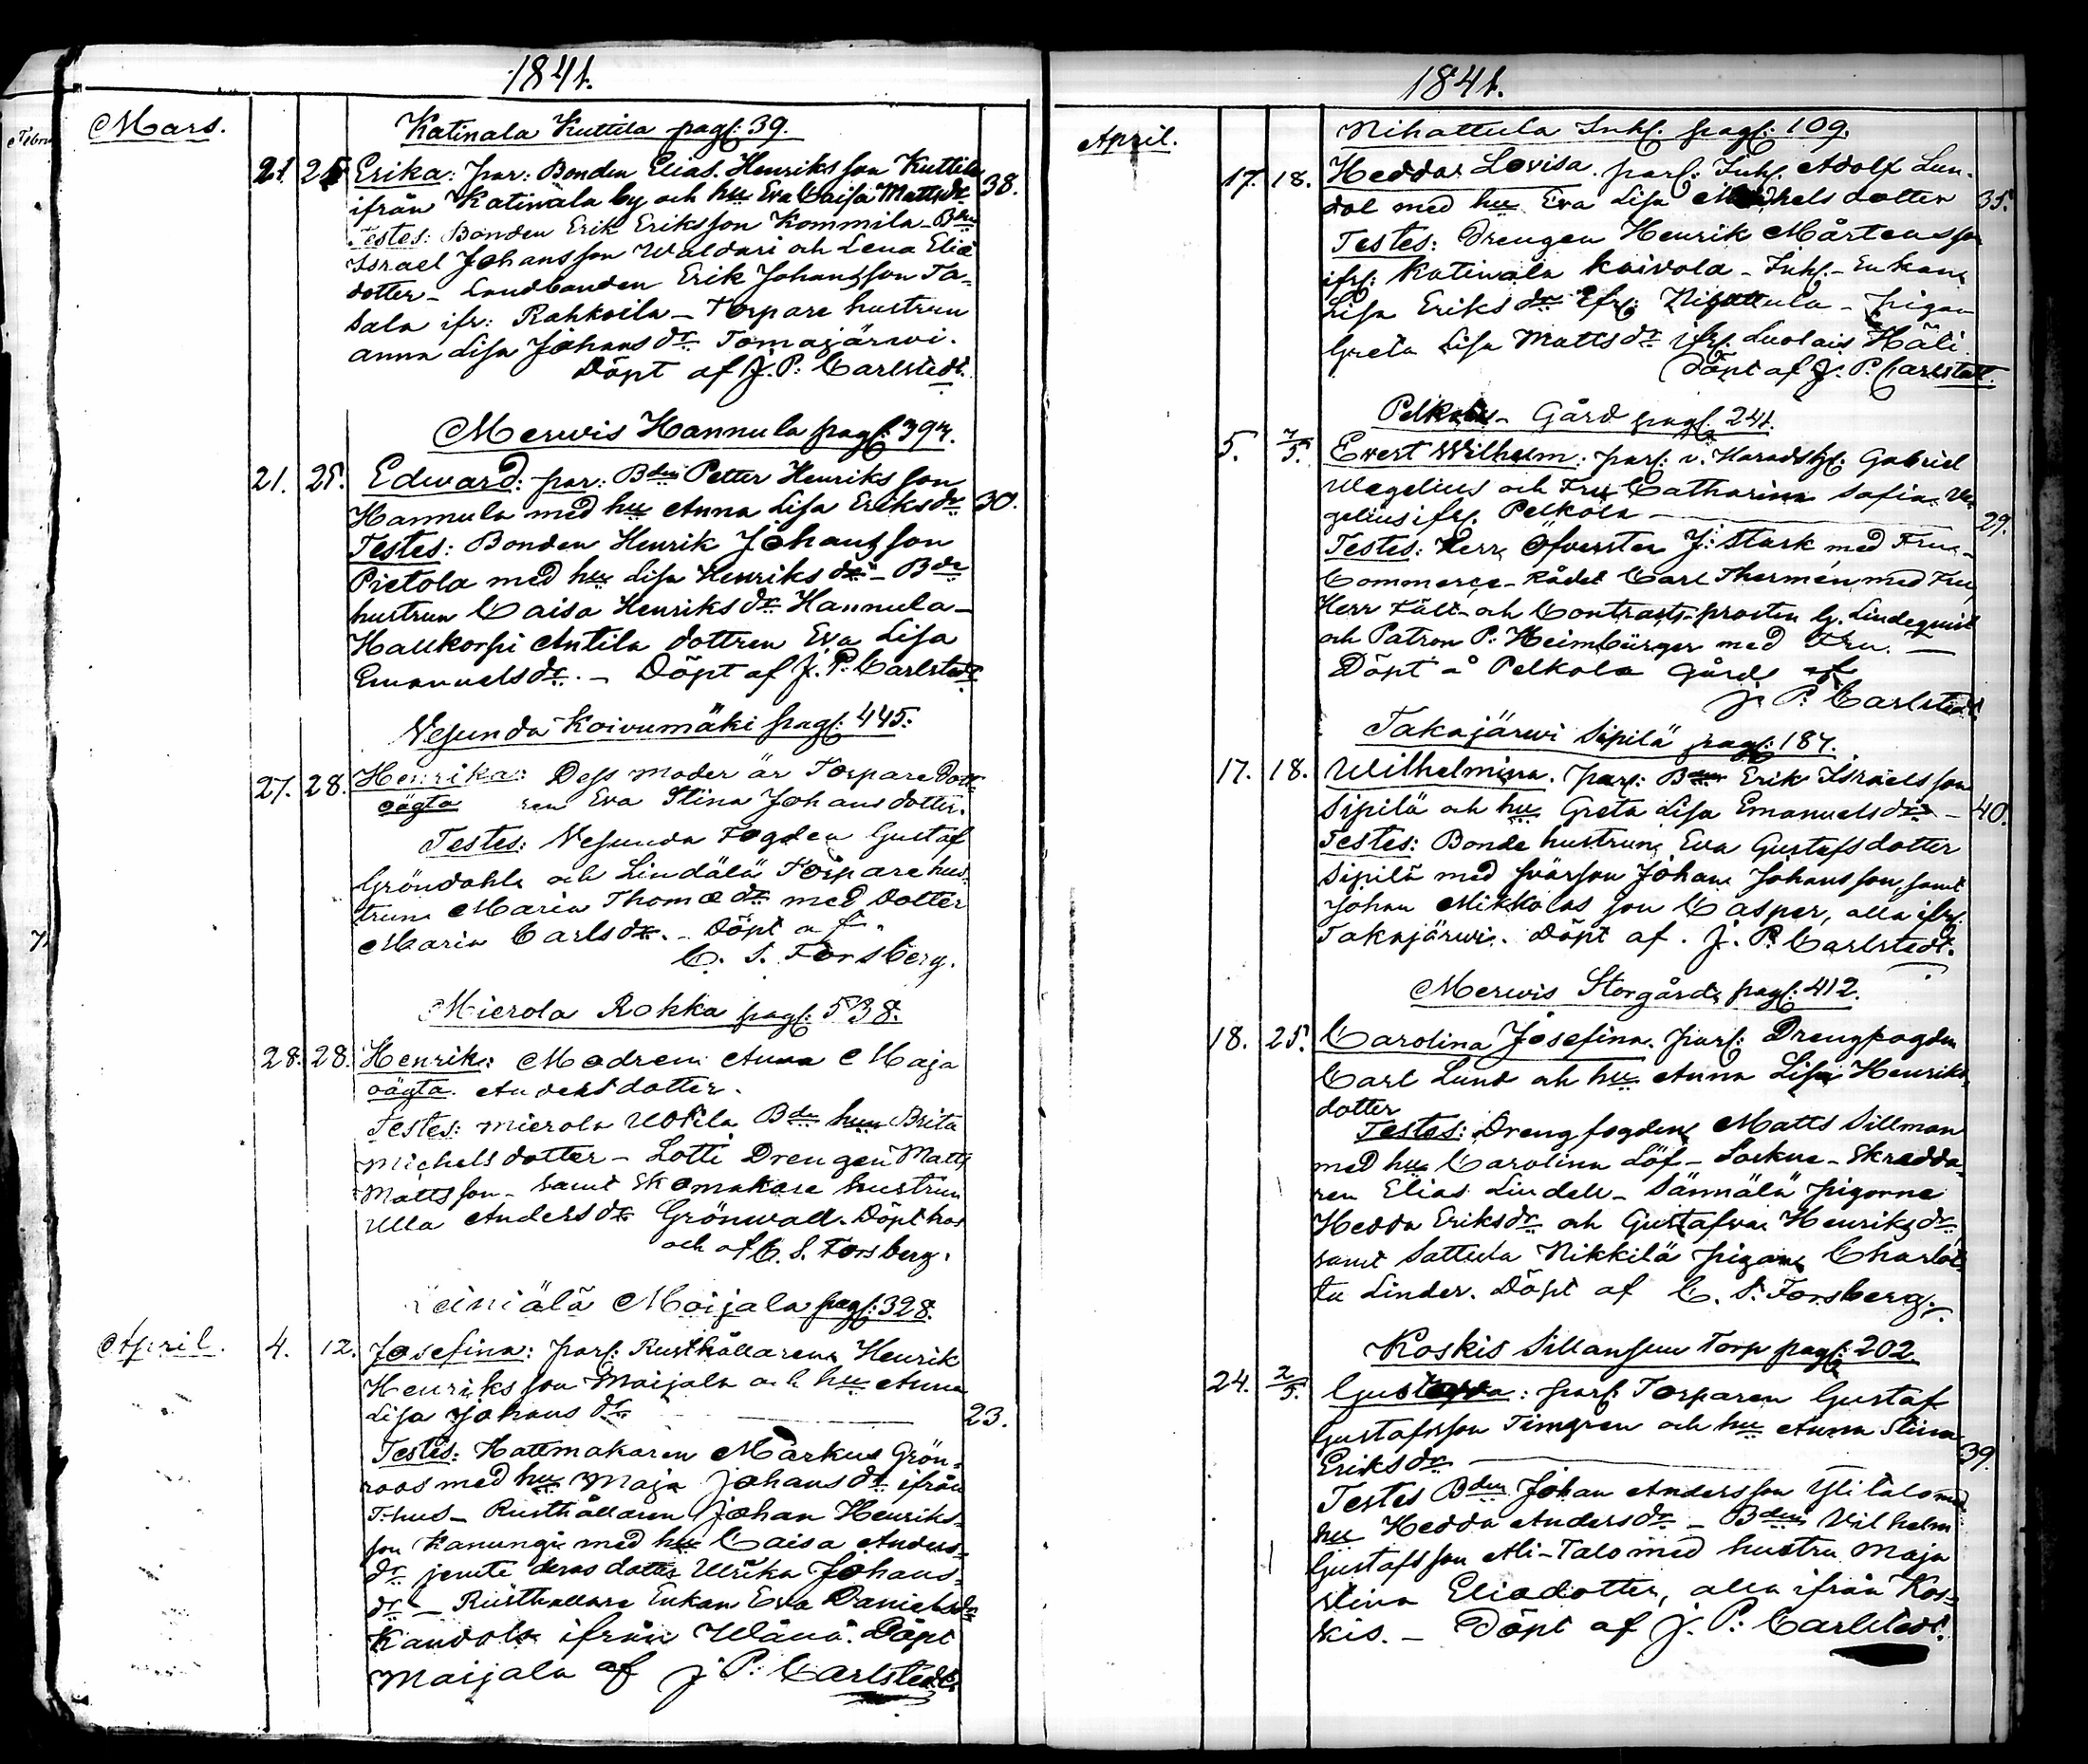 1841.
Mars.
Katinala Kuttila pag: 39.
21. 25 Erika: par: Bonden Elias Henriksson Kuttila 38.
ifrån Katinala by och hu Eva Caisa Mattsdr
Testes: Bonden Erik Eriksson Kommila - Bdn
Israel Johansson Waldari och Lena Elia
dotter - Landbonden Erik Johansson Ta-
sala ifr: Rahkoila - Torpare hustrun
Anna Lisa Johansdr Tomajärwi.
Döpt af J. P. Carlstedt.
Merwis Hannula pag: 397.
21. 25. Edward: par: Bdn Petter Henriksson
Hannula med hu Anna Lisa Eriksdr 30.
Testes: Bonden Henrik Johansson
Pietola med hu Lisa Henriksdr - Bde
hustrun Caisa Henriksdr Hannula -
Hallkorpi Antila dottren Eva Lisa
Emanuelsdr. - Döpt af J. P. Carlstedt
Wesunda Koivumäki pag: 445.
27. 28. Henrika: Dess moder är Torpare dott-
oägta ren Eva Stina Johansdotter.
Testes: Wesunda Fogden Gustaf
Gröndahl och Lindälä Torpare hus-
trun Maria Thomædr med dotter
Maria Carlsdr. - Döpt af
C. S. Forsberg.
Mierola Rokka pag: 538.
28. 28. Henrik: Modren Anna Maja
oägta. Andersdotter.
Testes: Mierola Uotila Bde hun Brita
Michelsdotter - Lotti Drengen Matts
Mattsson - samt Skomakare hustrun
Ulla Andersdr Grönwall. Döpt hos
och af C. S. Forsberg.
einiälä Maijala pag: 328.
April. 4. 12. Josefina: par: Rusthållaren Henrik
Henriksson Maijala och hu Anna
Lisa Johansdr 23.
Testes: Hattmakaren Markus Grön-
roos med hu Maja Johansdr ifrån
T-hus - Rusthållaren Johan Henriks-
son Kanungi med hu Caisa Anders-
dr jemte deras dotter Ulrika Johans-
dr - Rusthållare Enkan Eva Danielsdr
Kandola ifrån Wånå. Döpt
Maijala af J. P. Carlstedt.
1841.
April.
Nihattula Inhs. pag: 109.
17. 18. Hedda Lovisa. par: Inhs. Adolf Lun-
dal med hu Eva Lisa Michelsdotter 35.
Testes: Drengen Henrik Mårtensson
ifr: Katinala Koivola - Inhs. Enkan
Lisa Eriksdr ifr: Nihattula - pigan
Greta Lisa Mattsdr ifr. Luolais Häli
Döpt af J. P. Carlstedt.
Pelkola - Gård pag: 241.
5. 7/5. Evert Wilhelm: par: v. Haradshf. Gabriel
Wegelius och Fru Catharina Sofia We-
gelius ifr. Pelkola - 29.
Testes: Herr Öfversten J: Stark med Fru -
Commerce-Rådet Carl Thermén med Fru
Herr Fält- och Contracts-prosten G. Lindequist
och Patron P. Heimbürger med Fru. -
Döpt å Pelkola Gård af
J. P. Carlstedt
Takajärwi Sipilä pag: 187.
17. 18. Wilhelmina. par: Bdn Erik Israelsson
Sipilä och hu Greta Lisa Emanuelsdr - 40.
Testes: Bonde hustrun Eva Gustafsdotter
Sipilä med svärson Johan Johansson, samt
Johan Mikkolas son Casper, alla ifr.
Takajärwi. Döpt af J. P. Carlstedt.
Merwis Storgård pag: 412.
18. 25. Carolina Josefina. par: Drengfogden
Carl Lund och hu Anna Lisa Henriks-
dotter
Testes: Drengfogden Matts Sillman
med hu Carolina Löf - Sorkue - Skredda-
ren Elias Lindell - Sännälä pigorne
Hedda Eriksdr och Gustafva Henriksdr
samt Sattula Nikkilä pigan Charlot-
ta Linder. Döpt af C. S. Forsberg.
Koskis Sillansuu Torp pag: 202.
24. 2/5. Gustafva: par: Torparen Gustaf
Gustafsson Timgren och hu Anna Stina
Eriksdr - 39.
Testes Bdn Johan Andersson Ylitalo med
hu Hedda Andersdr - Bdn Vilhelm
Gustafsson Ali-Talo med hustru Maja
Stina Eliadotter, alla ifrån Kos-
kis. - Döpt af J. P. Carlstedt.